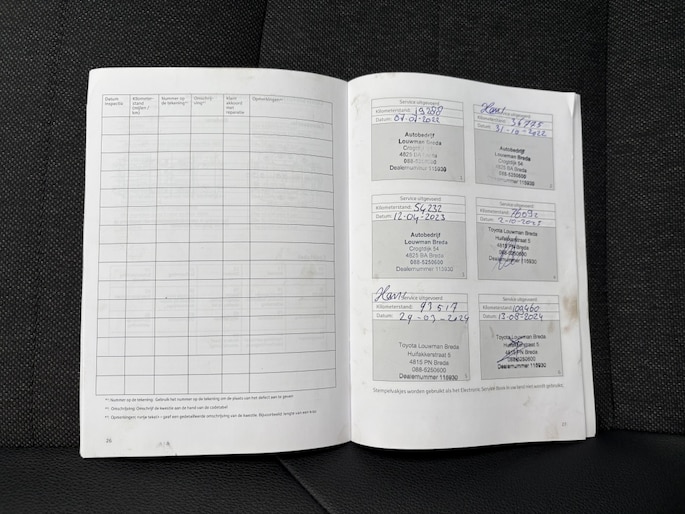 Datum inspectie
Kilometerstand (mijlen / km)
Nummer op de tekening*¹⁾
Omschrijving*²⁾
Klant akkoord met reparatie
Opmerkingen*³⁾
*¹⁾ Nummer op de tekening: Gebruik het nummer op de tekening om de plaats van het defect aan te geven
*²⁾ Omschrijving: Omschrijf de kwestie aan de hand van de codetabel
26
Service uitgevoerd
Kilometerstand: 19288
Datum: 07-01-2022
Autobedrijf
Louwman Breda
Crogtdijk 54
4825 BA Breda
088-5250600
Dealernummer 115930
1
Service uitgevoerd
Kilometerstand: 36775
Datum: 31-10-2022
Autobedrijf
Louwman Breda
Crogtdijk 54
4825 BA Breda
088-5250600
Dealernummer 115930
2
Service uitgevoerd
Kilometerstand: 54232
Datum: 12-04-2023
Autobedrijf
Louwman Breda
Crogtdijk 54
4825 BA Breda
088-5250600
Dealernummer 115930
3
Service uitgevoerd
Kilometerstand: 76092
Datum: 2-10-2023
Toyota Louwman Breda
Huifakkerstraat 5
4815 PN Breda
088-5250600
Dealernummer 115930
4
Service uitgevoerd
Kilometerstand: 93517
Datum: 29-03-2024
Toyota Louwman Breda
Huifakkerstraat 5
4815 PN Breda
088-5250600
Dealernummer 115930
5
Service uitgevoerd
Kilometerstand: 109460
Datum: 13-08-2024
Toyota Louwman Breda
Huifakkerstraat 5
4815 PN Breda
088-5250600
Dealernummer 115930
6
Stempelvakjes worden gebruikt als het Electronic Service Book in uw land niet wordt gebruikt.